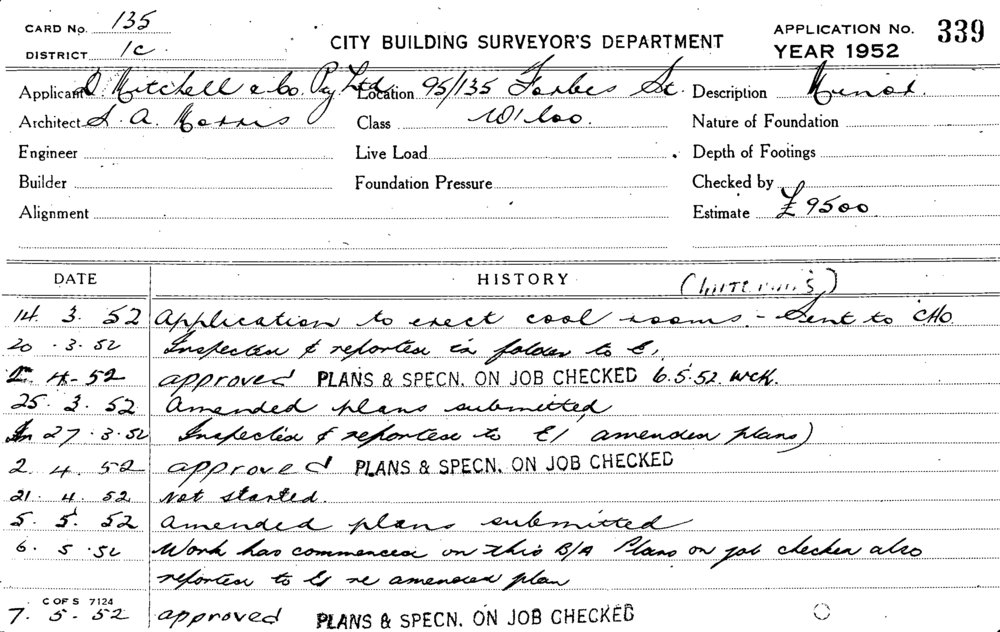 CARD No. 135
DISTRICT 1c
CITY BUILDING SURVEYOR'S DEPARTMENT
APPLICATION No. 339
YEAR 1952
Applicant D. Mitchell & Co. Pty Ltd Location 95/135 Forbes St. Description Minor.
Architect S. A. Morris Class Nature of Foundation
Engineer Live Load Depth of Footings
Builder Foundation Pressure Checked by
Alignment Estimate £9500
DATE HISTORY
14. 3. 52 Application to erect cool rooms. - Sent to CHO
20 . 3. 52 Inspected & reported in folder to E,
2. 4. 52 approved PLANS & SPECN. ON JOB CHECKED 6.5.52. WCK.
25. 3. 52 Amended plans submitted
27. 3. 52 Inspected & reported to E/ amended plans)
2. 4. 52 approved PLANS & SPECN. ON JOB CHECKED
21. 4. 52 Not started.
5. 5. 52 Amended plans submitted
6. 5. 52 Work has commenced on this B/A Plans on job checked also
reported to E/ re amended plan
C OF S 7124
7. 5. 52 approved PLANS & SPECN. ON JOB CHECKED